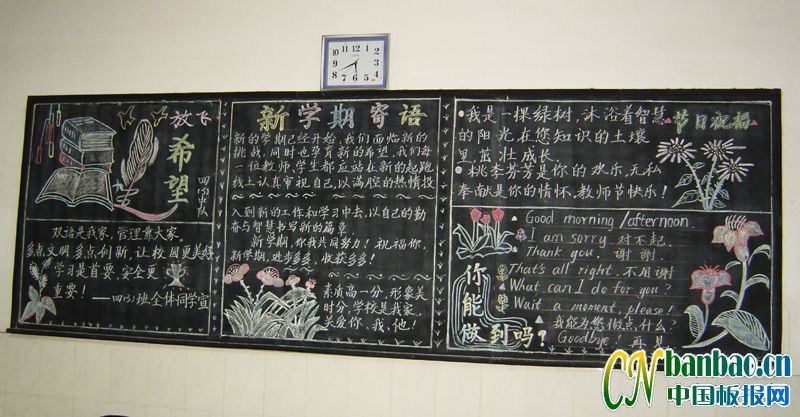 12
11
10
9
8
7
6
5
4
3
2
1
放飞
希望
四(3)中队
双语是我家,管理靠大家。
多点文明,多点创新,让校园更美好
学习是首要,安全更
重要!
——四(3)班全体同学宣
新学期寄语
新的学期已经开始,我们面临新的
挑战,同时也孕育新的希望。我们每
一位教师、学生都应站在新的起跑
线上认真审视自己,以满腔的热情投
入到新的工作和学习中去,以自己的勤
奋与智慧书写新的篇章
新学期,你我共同努力!祝福你,
新学期,进步多多,收获多多!
素质高一分,形象美
时分,学校是我家,
关爱你、我、他!
节日祝福
我是一棵绿树,沐浴着智慧
的阳光在您知识的土壤
里茁壮成长.
桃李芬芳是你的欢乐,无私
奉献是你的情怀,教师节快乐!
你能做到吗?
Good morning/afternoon.
I am sorry. 对不起.
Thank you. 谢谢.
That's all right. 不用谢
What can I do for you?
Wait a moment, please!
我能为您做点什么?
Goodbye! 再见
CN banbao.cn
中国板报网